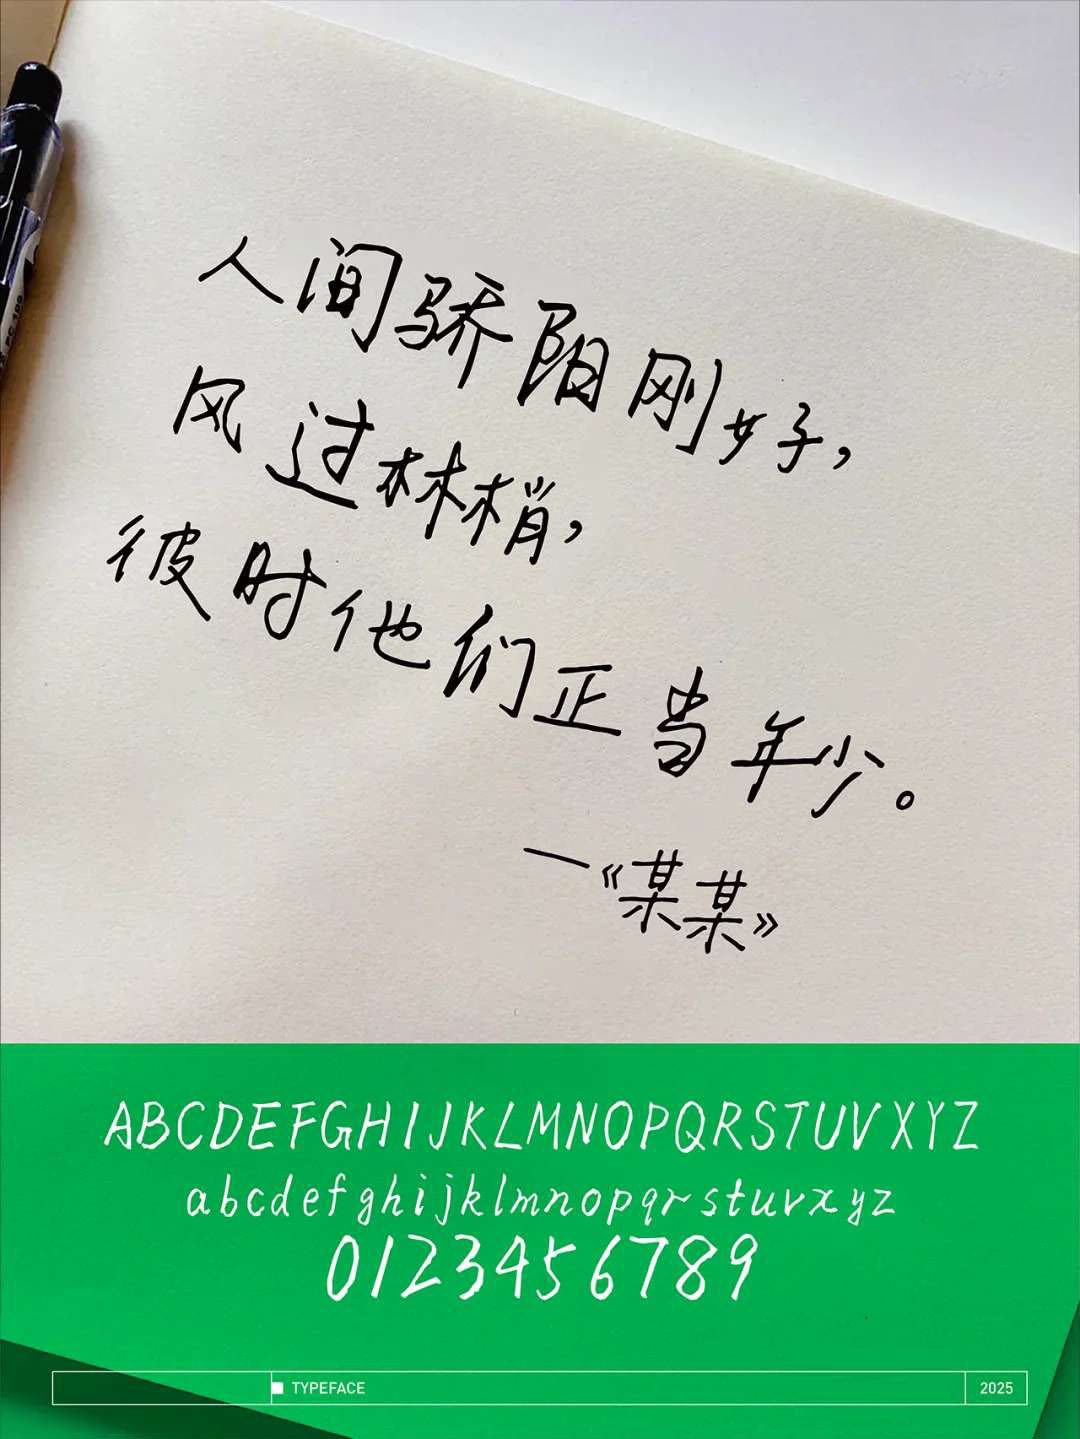 人间骄阳刚好，
风过林梢，
彼时他们正当年少。
—《某某》
ABCDEFGHIJKLMNOPQRSTUVXYZ
abcdefghijklmnopqrstuvxyz
0123456789
TYPEFACE
2025